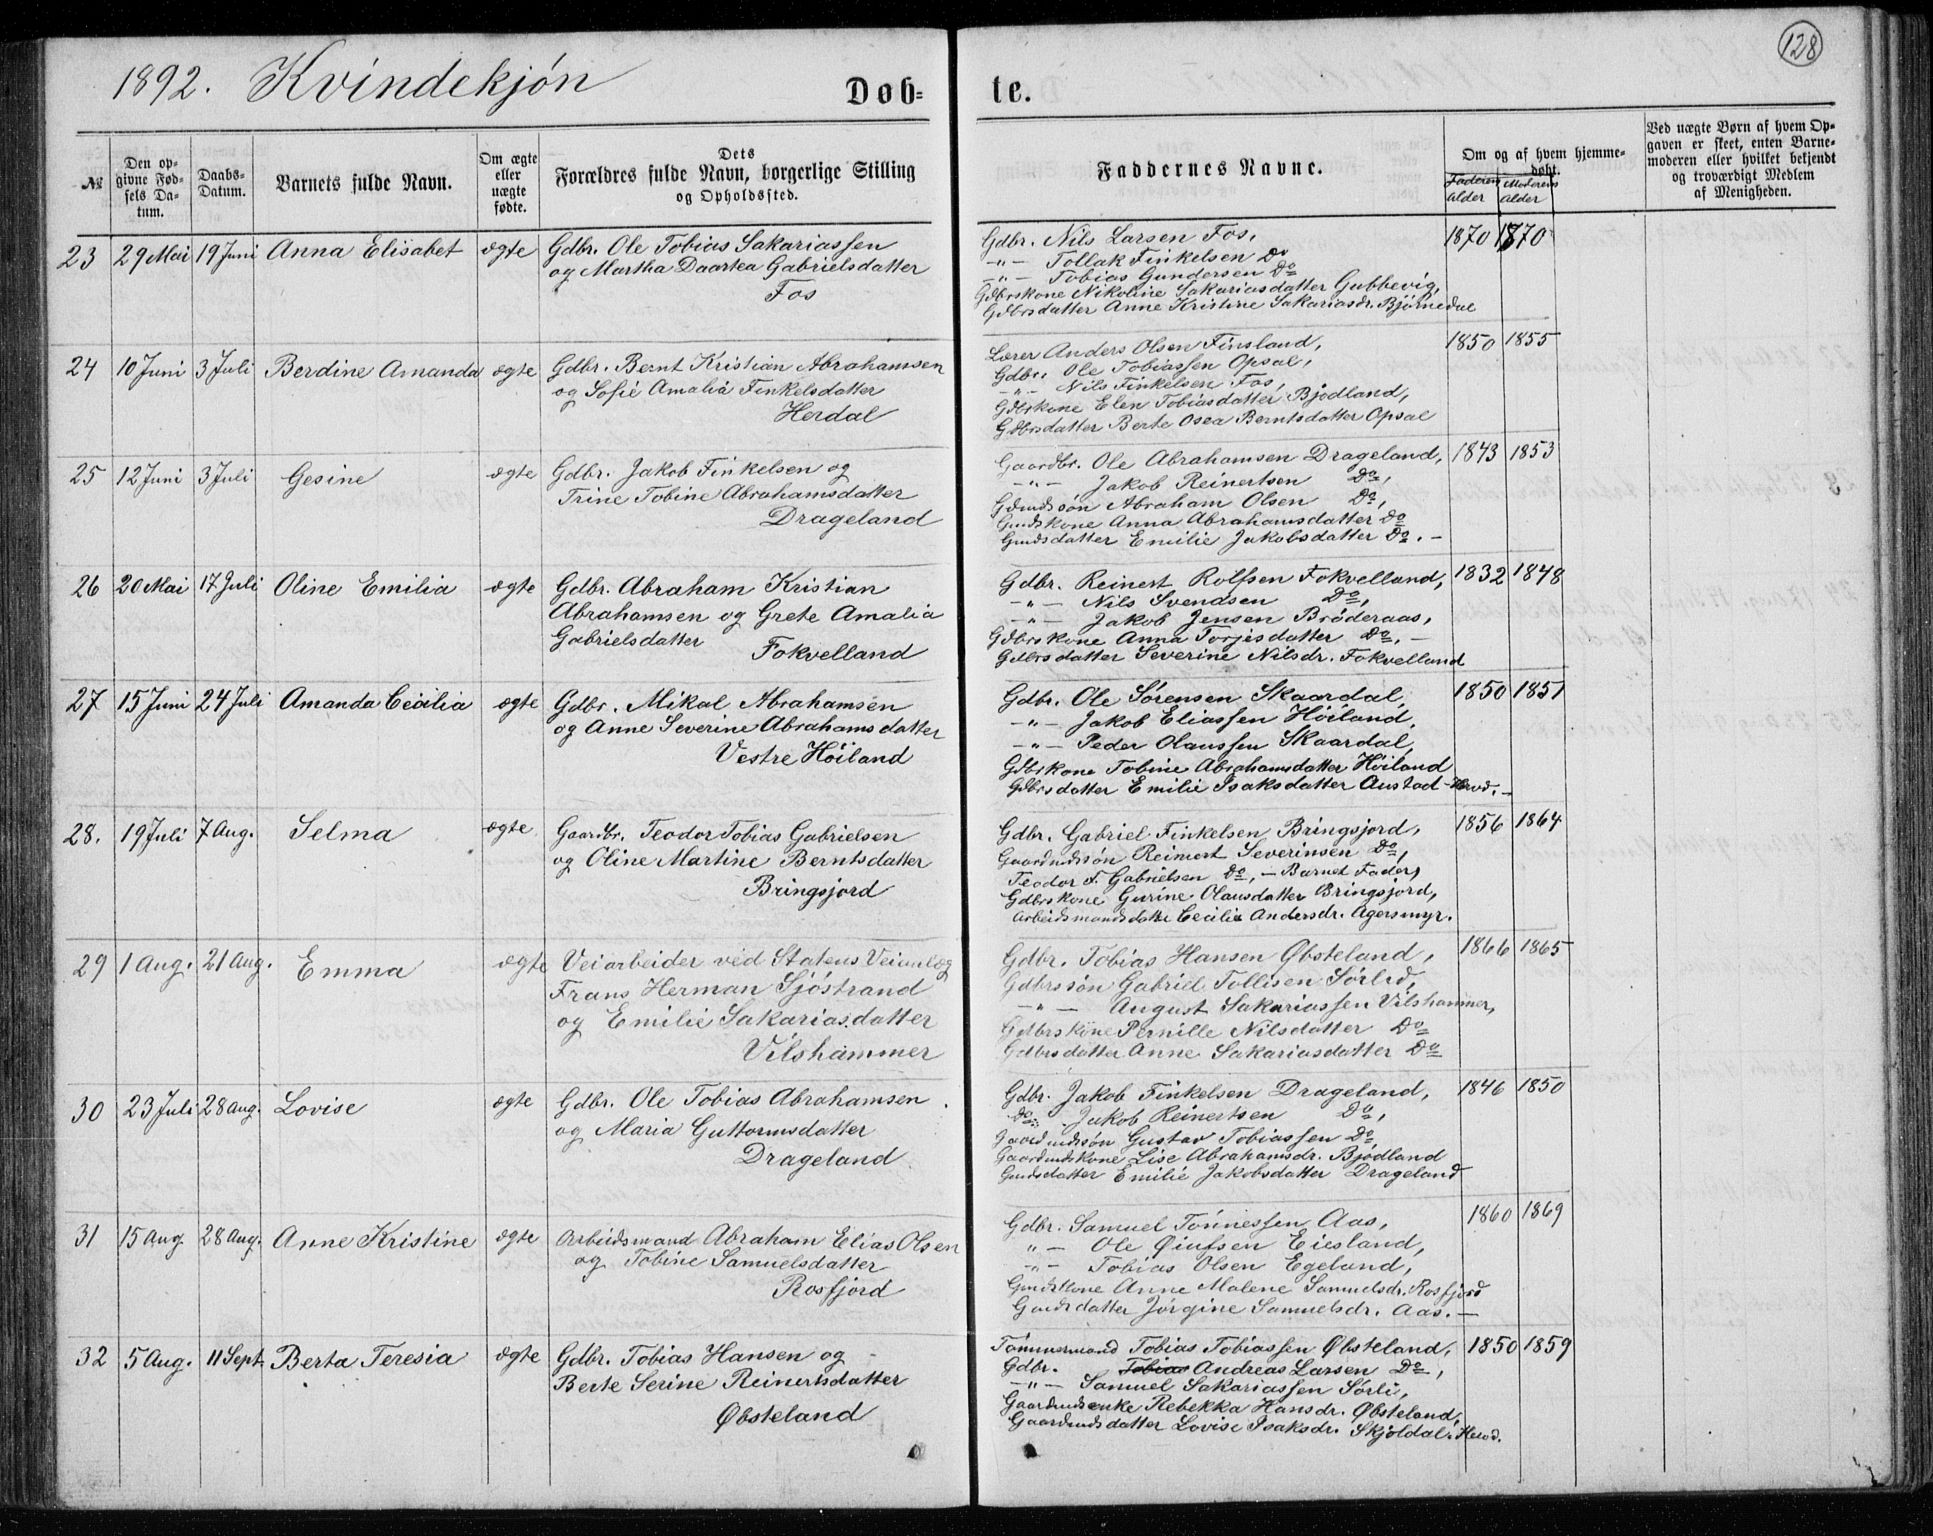 128
1892. Kvindekjón
Døb=
te.
№
Den op-
givne Fød-
sels Da-
tum.
Daabs-
Datum.
Barnets fulde Navn.
Om ægte
eller
uægte
fødte.
Dets
Forældres fulde Navn, borgerlige Stilling
og Opholdssted.
Faddernes Navne.
Om og af hvem hjemme-
døbt.
Faderens
Alder
Moderens
Alder
Ved uægte Børn af hvem Op-
gaven er skeet, enten Barne-
moderen eller hvilket bekjendt
og troværdigt Medlem
af Menigheden.
23 29 Mai 19 Juni Anna Elisabet ægte
Gdbr. Ole Tobias Sakariassen
og Martha Daartea Gabrielsdatter
Fos
Gdbr. Nils Larsen Fos,
-"- Tollak Finkelsen Do
-"- Tobias Gundersen Do
Gdbrskone Nikoline Sakariasdatter Gubbevig,
Gdbrsdatter Anne Kristine Sakariasdr. Bjørnedal
1870 1870
24 10 Juni 3 Juli Berdine Amanda ægte
Gdbr. Bernt Kristian Abrahamsen
og Sofie Amalia Finkelsdatter
Herdal
Lærer Anders Olsen Finsland,
Gdbr. Ole Tobiassen Opsal,
-"- Nils Finkelsen Fos,
Gdbrkone Elen Tobiasdatter Bjødland,
Gdbrsdatter Berte Osea Berntsdatter Opsal
1850 1855
25 12 Juni 3 Juli Gesine ægte
Gdbr. Jakob Finkelsen og
Trine Tobine Abrahamsdatter
Drageland
Gaardbr. Ole Abrahamsen Drageland,
-"- Jakob Reinertsen Do,
Gdmdssön Abraham Olsen Do,
Gmdskone Anna Abrahamsdatter Do
Gmdsdatter Emilie Jakobsdatter Do. -
1843 1853
26 20 Mai 17 Juli Oline Emilia ægte
Gdbr. Abraham Kristian
Abrahamsen og Grete Amalia
Gabrielsdatter
Fokvelland
Gdbr. Reinert Rolfsen Fokvelland,
-"- Nils Svendsen Do,
-"- Jakob Jensen Bróderaas,
Gdbrskone Anna Torjesdatter Do. -
Gdbrsdatter Severine Nilsdr. Fokvelland
1832 1848
27 15 Juni 24 Juli Amanda Cecilia ægte
Gdbr. Mikal Abrahamsen
og Anne Severine Abrahamsdatter
Vestre Hóiland
Gdbr. Ole Sórensen Skaardal,
-"- Jakob Eliassen Hóiland,
-"- Peder Olaussen Skaardal,
Gdbrkone Tobine Abrahamsdatter Hóiland
Gdbrsdatter Emilie Isaksdatter Austad -
1850 1851
28. 19 Juli 7 Aug. Selma ægte
Gaardbr. Teodor Tobias Gabrielsen
og Oline Martine Berntsdatter
Bringsjord
Gdbr. Gabriel Finkelsen Bringsjord,
Gaardmdssön Reinert Severinsen Do,
Teodor T. Gabrielsen Do, - Barnet Fader,
Gdbrskone Gurine Olausdatter Bringsjord,
Arbeidsmandsdatte Cecilie Andersdr. Agersmyr.
1856 1864
29 1 Aug. 21 Aug. Emma ægte
Veiarbeider ved Statens Veianlæg
Frans Herman Sjóstrand
og Emilie Sakariasdatter
Vilshammer
Gdbr. Tobias Hansen Øbsteland,
Gdbrssón Gabriel Tollisen Sórlid,
-"- August Sakariassen Vilshammer,
Gdbrskone Pernille Nilsdatter Do
Gdbrsdatter Anne Sakariasdatter Do
1866 1865
30 23 Juli 28 Aug. Lovise ægte
Gdbr. Ole Tobias Abrahamsen
og Maria Guttormsdatter
Drageland
Gdbr. Jakob Finkelsen Drageland,
Do Jakob Reinertsen Do,
Gaardmdssón Gustav Tobiassen Do,
Gaardmdskone Lise Abrahamsdr. Bjödland
Gmdsdatter Emilie Jakobsdatter Drageland
1846 1850
31 15 Aug 28 Aug. Anne Kristine ægte
Arbeidsmand Abraham Elias Olsen
og Tobine Samuelsdatter
Rosfjord
Gdbr. Samuel Tónnessen Aas,
"- Ole Øiufsen Eiesland,
-"- Tobias Olsen Egeland,
Gmdskone Anne Malene Samuelsdr. Rosfjord
Gmdsdatter Jórgine Samuelsdr. Aas. -
1860 1869
32 5 Aug. 11 Sept Berta Teresia ægte
Gdbr. Tobias Hansen og
Berte Serine Reinertsdatter
Øbsteland
Tómmermand Tobias Tobiassen Øbsteland,
Gdbr. Tobias Andreas Larsen Do,
-"- Samuel Sakariassen Sórli,
Gaardmdsenke Rebekka Hansdr. Øbsteland,
Gaardmdsdatter Lovise Isaksdr. Skjöldal.
1850 1859